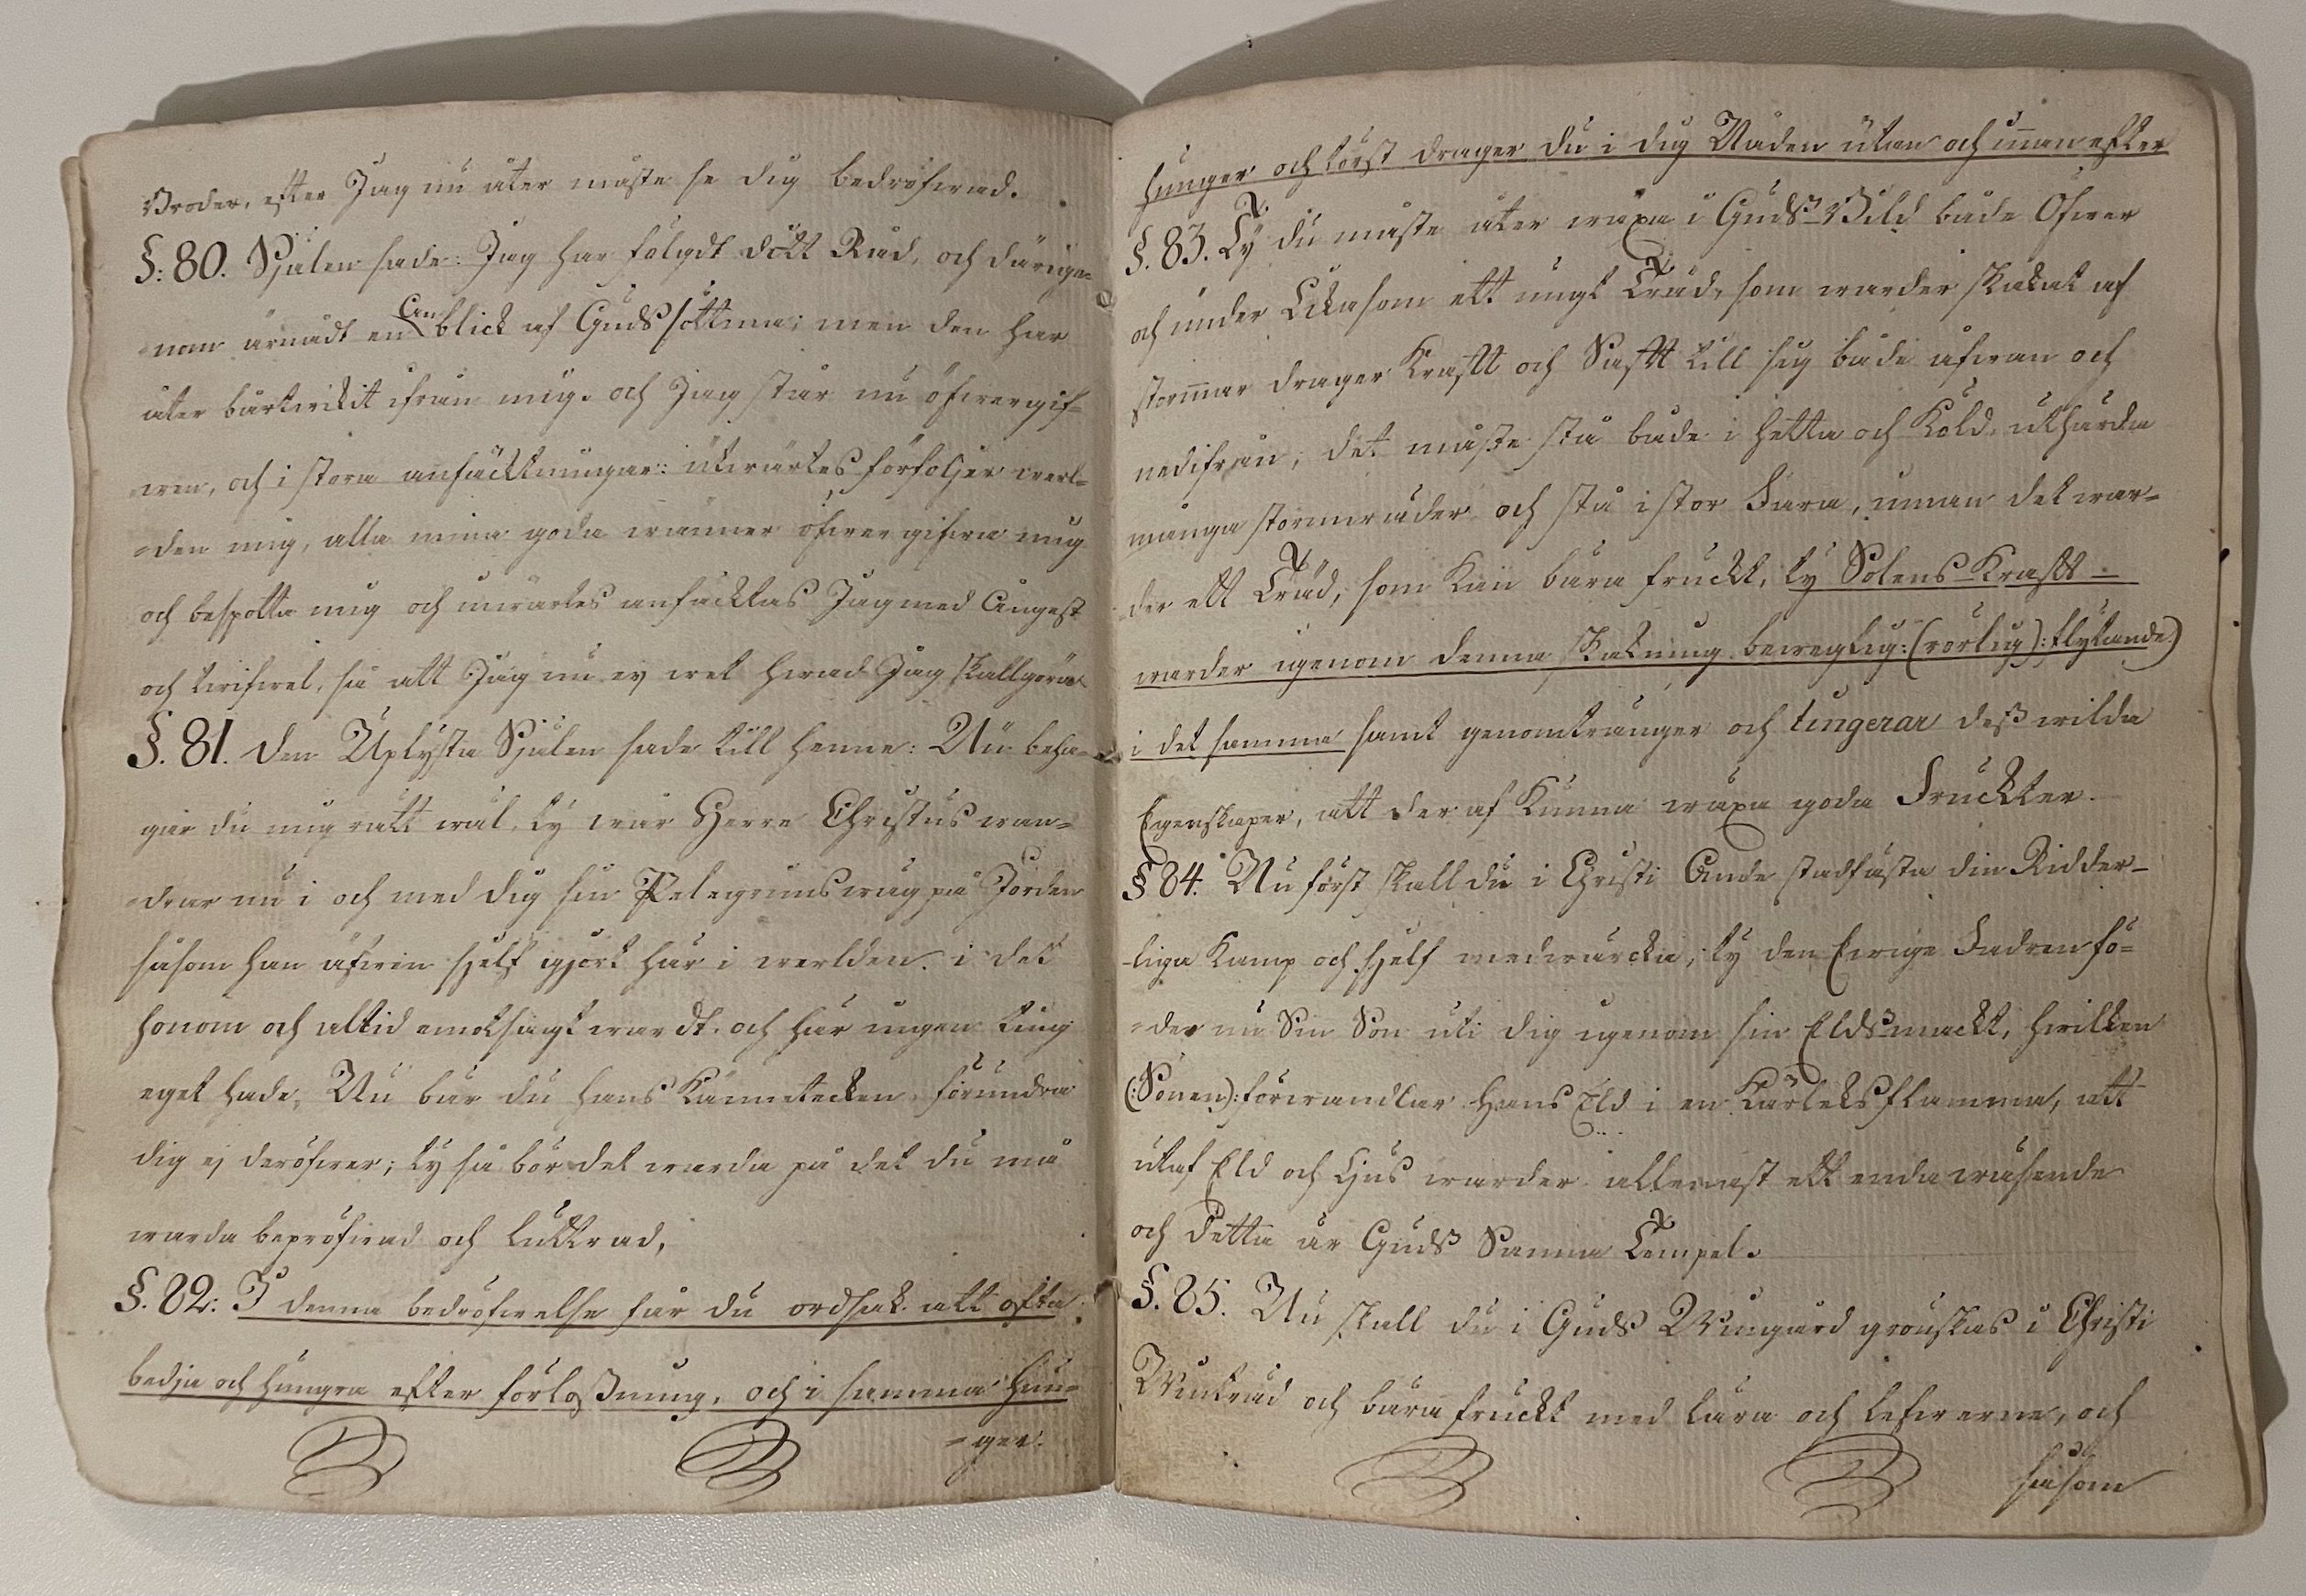 Broder, efter Jag nu åter måste se dig bedröfwad.
§: 80. Själen sade: Jag har fölgdt ditt Råd, och därige=
=nom ärnådt en Anblick af Guds söttma; men den har
åter bårtwikit ifrån mig. och Jag står nu öfwergif=
=wen, och i stora anfäcktningar: utwärtes förföljer werl=
=den mig, alla mina goda wänner öfwergifwa mig
och bespotta mig och inwärtes anfäcktas Jag med Angest
och twifwel, så att Jag nu ej wet hwad Jag skall göra.
§. 81. den Uplysta Själen sade till henne: Nu beha=
gar du mig rätt wäl, ty wår Herre Christus wan=
=drar nu i och med dig sin Pelegrimswäg på Jorden
såsom han äfwen sjelf gjort här i werlden. i det
honom och altid emotsagt wardt. och här ingen ting
eget hade, Nu bär du hans Kännetecken, förundra
dig ej deröfwer; ty så bör det warda på det du må
warda bepröfwad och luttrad,
§. 82: I denna bedröfwelse får du ordsak att ofta
bedja och hungra efter förloßning, och i samma hun=
=ger.
hunger och törst drager du i dig Nåden utan och innan efter
§. 83. Ty du måste åter wäxa i Guds Bild både Ofwer
och under Likasom ett ungt Träd, som warder skakat af
stormar drager Krafft och Safft till sig både åfwan och
nedifrån; det måste stå både i hetta och Köld, uthärda
många stormwäder och stå i stor Fara, innan det war=
=der ett Träd, som kan bära fruckt, ty Solens Krafft =
warder igenom denna skakning beweglig: (rörlig): flytande)
i det samma samt genomtränger och tingerar deß wilda
Egenskaper, att der af kunna wäxa goda Fruckter.
§ 84. Nu först skall du i Christi Anda stadfästa din Ridder=
=liga Kamp och sjelf medwärcka, ty den Ewige Fadren fö=
=der nu Sin Son uti dig igenom sin Eldsmackt, hwilken
(:Sonen): förwandlar hans Eld i en Kärleksflamma, att
utaf Eld och Ljus warder allenast ett enda wäsende
och detta är Guds Sanna Tempel.
§. 85. Nu skall du i Guds Wingård grönskas i Christi
Winträd och bära fruckt med lära och lefwerne, och
såsom